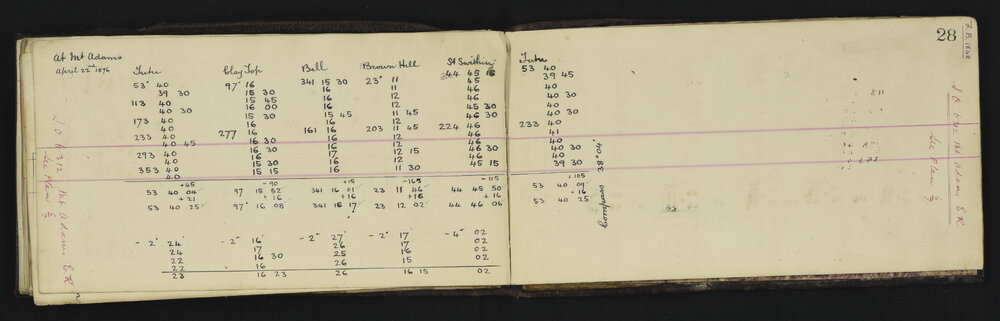 At Mt Adams
April 22nd 1896
Clay Top
Bell
Brown Hill
53° 40 97° 16 341 15 30 23° 11 44 45 15 53 40
39 30 15 30 16 11 45 39 45
113 40 15 45 16 12 46 40
40 30 16 00 16 12 46 40 30
173 40 15 30 15 45 11 45 45 30 40
40 16 16 12 46 30 40 30
233 40 277 16 161 16 203 11 45 224 46 233 40
40 16 16 12 46 41
40 45 16 30 16 12 46 40
293 40 16 17 12 15 46 30 40 30
40 15 30 16 12 46 40
353 40 15 15 16 11 30 45 15 39 30
40
+45 -90 +15 -165 -115 +105
53 40 04 97 15 52 341 16 01 23 11 46 44 45 50 53 40 09
+21 +16 +16 +16 +16
53 40 25 97° 16 08 341 15 17 23 12 02 44 46 06 53 40 25
Compass 38° 04'
- 2° 24' - 2° 16' - 2° 27' - 2° 17' - 4° 02
24 17 26 17 02
22 16 30 25 16 02
22 16 26 15 02
23 16 23 26 16 15 02
S O 632 Mt Adam E R
See plan 6/7
28
F. B. 1048
S O 632 Mt adam E R
See plan 6/7